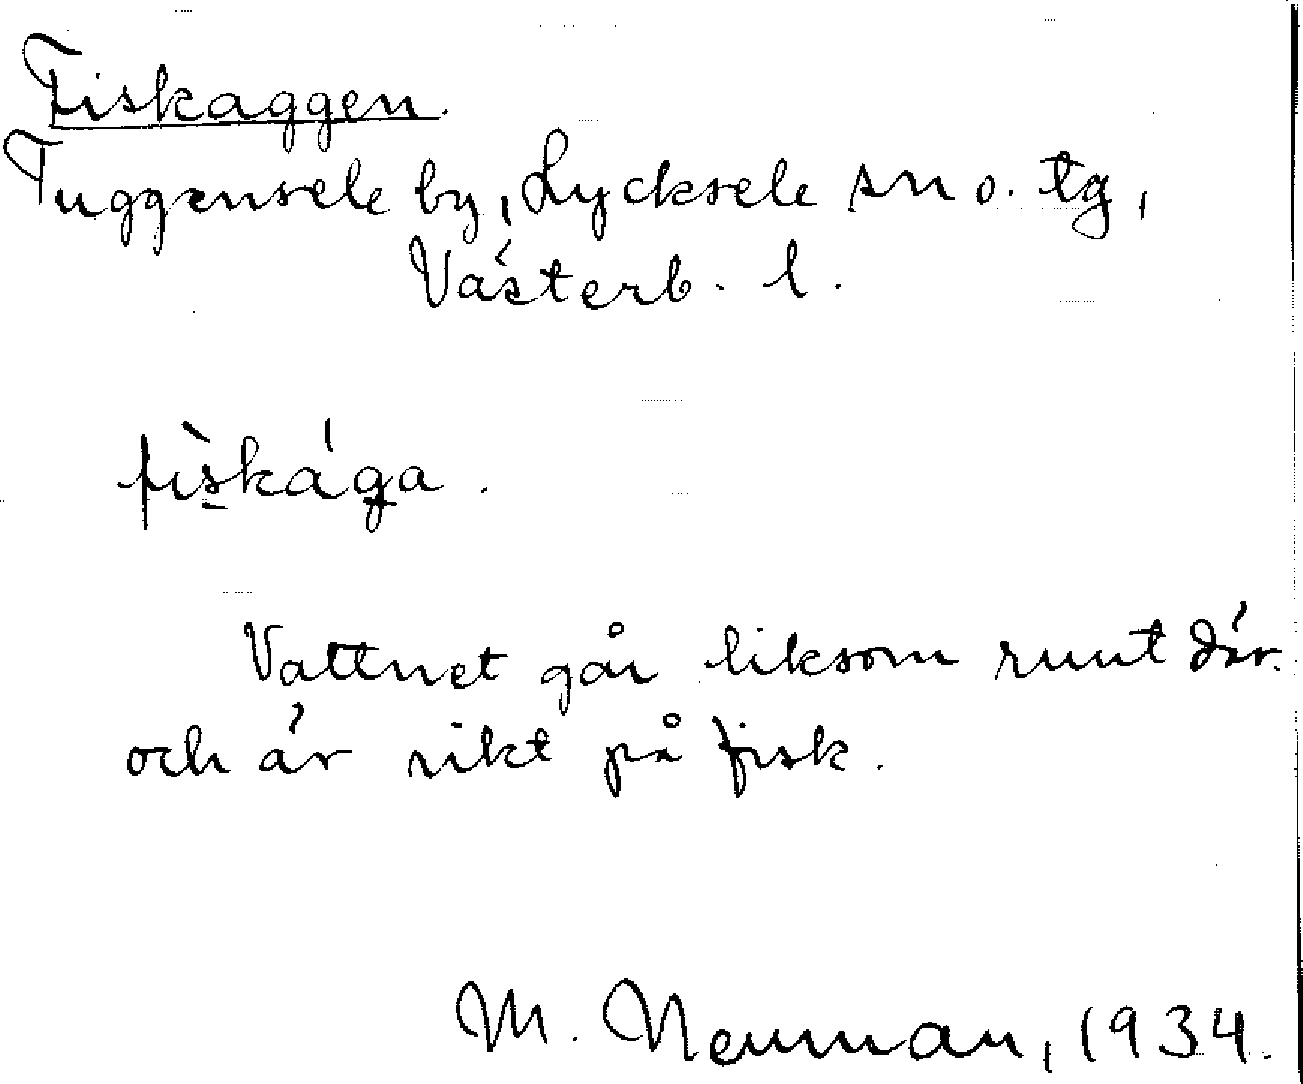 Fiskaggen.
Tuggensele by, Lycksele sn o. tg,
Västerb. l.
fìskága.
Vattnet går liksom runt där
och är rikt på fisk.
M. Neuman, 1934.